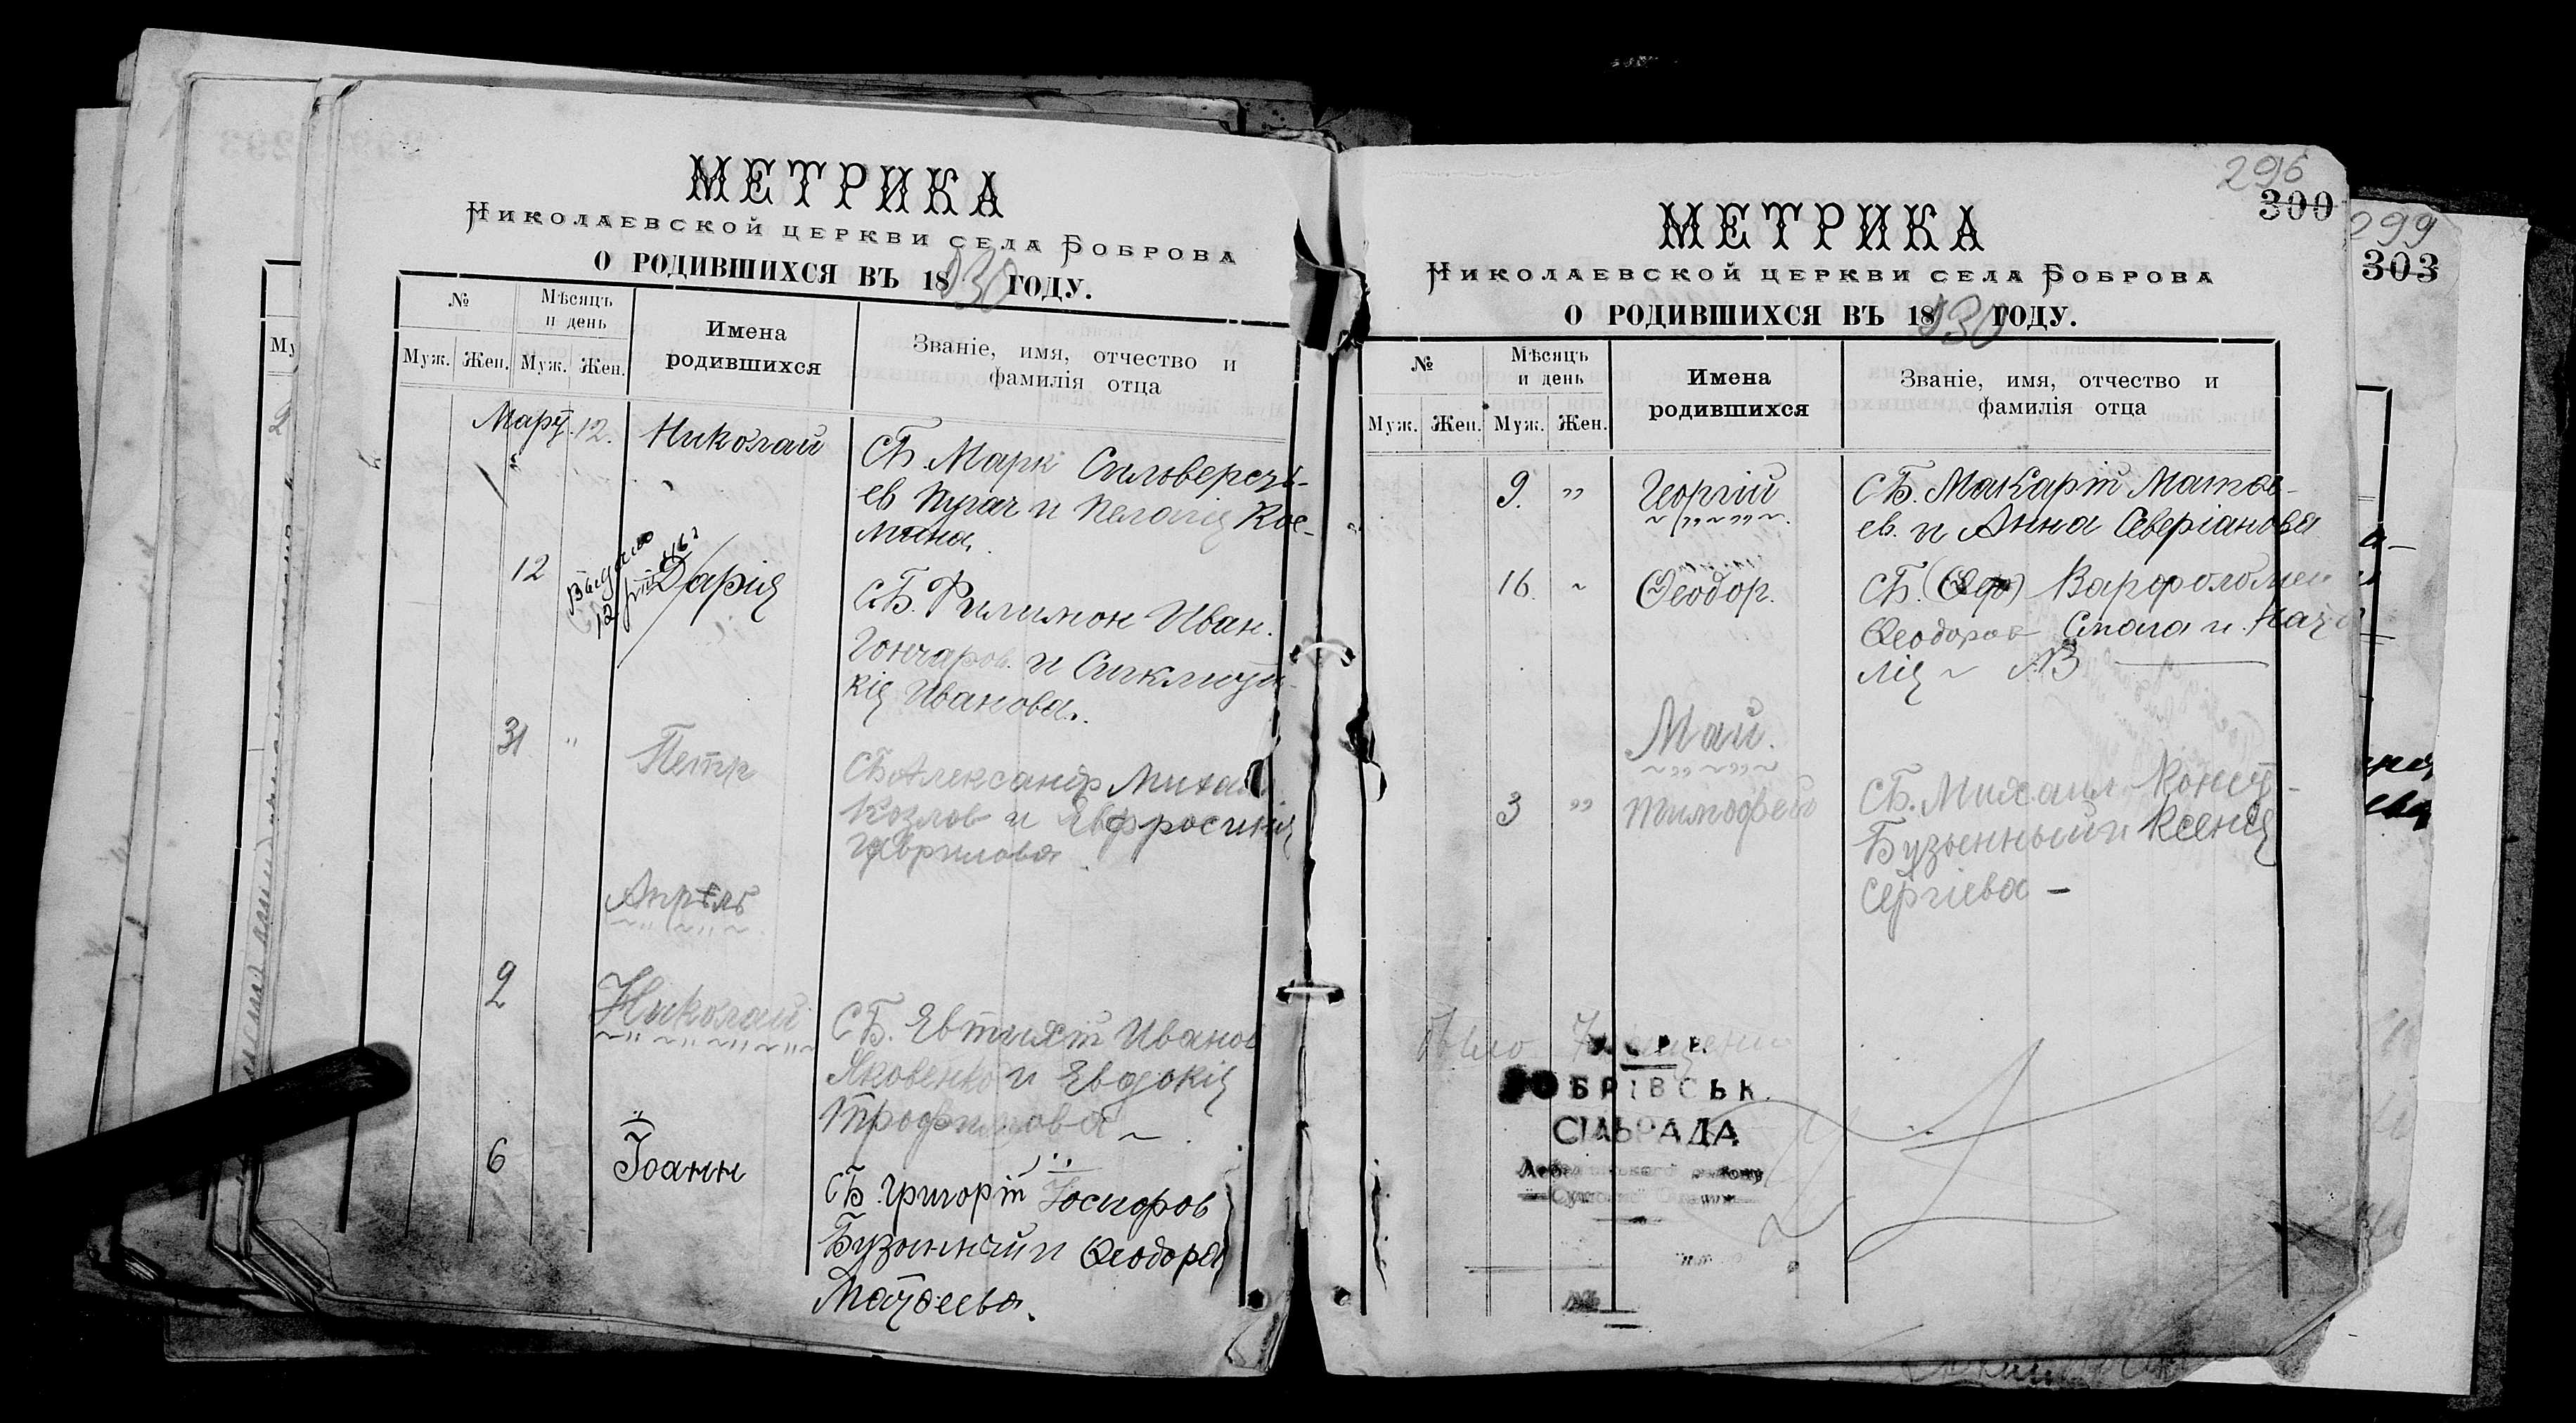 МЕТРИКА
Николаевской церкви села Боброва
О РОДИВШИХСЯ ВЪ 18930 ГОДУ.
№
Мѣсяцъ и день
Имена родившихся
Званіе, имя, отчество и фамилія отца
Муж. Жен. Муж. Жен.
Март. 12. Николай СБ. Марк Силоверсті-
ев Пугач и Пелагія Кос-
мина.
12 Выдано Дарія СБ. Филимон Иван.
12
Гончаров. и Сиклити-
кія Иванова.
31 " Петр СБ Александр Михаи
Козлов и Евфросинія
Гаврилова
Апрѣль
2 Николай СБ. Евтихій Иванов
Яковенко и Евдокія
Трофимова ~
6 Іоанн СБ. Григорій Іосифов
Бузынный и Ѳеодора
Матѳеева.
296
300
МЕТРИКА
Николаевской церкви села Боброва
О РОДИВШИХСЯ ВЪ 18930 ГОДУ.
№
Мѣсяцъ и день
Имена родившихся
Званіе, имя, отчество и фамилія отца
Муж. Жен. Муж. Жен.
9. " Георгій СБ. Макарій Матѳе-
ев. и Анна Северіанова
16. ~ Ѳеодор. СБ. Варфоломеи
Ѳеодоров и Ната
лія ~
Май.
3 " Тимофей СБ. Михаил Конст-
Бузынный и Ксенія
Сергіева —
Было
БОБРІВСЬК.
СІЛЬРАДА
299
303
Му